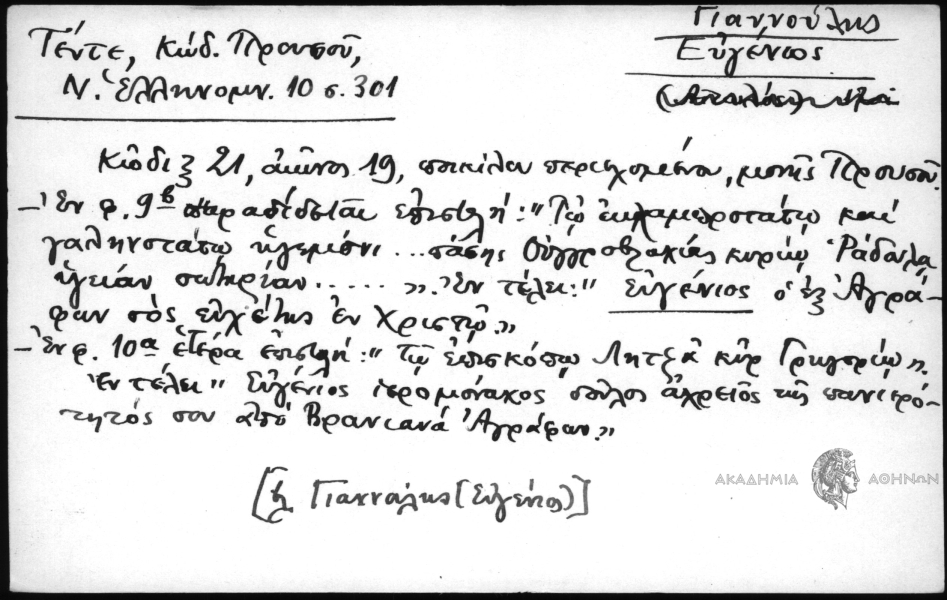 Γιαννούλης
Εὐγένιος
Τέντε, Κώδ. Προυσοῦ,
Ν. Ἑλληνομν. 10 σ. 301
Κῶδιξ 21, αἰῶνος 19, ποικίλου περιεχομένου, μονῆς Προυσοῦ.
– Ἐν φ. 9β παραδίδεται ἐπιστολή: "Τῷ ἐκλαμπροτάτῳ καὶ
γαληνοτάτῳ ἡγεμόνι ... πάσης Οὑγγροβλαχίας κυρίῳ Ῥάδουλα
ὑγείαν σωτηρίαν ..... ". Ἐν τέλει: " Εὐγένιος ὁ ἐξ Ἀγρά-
φων σὸς εὐχέτης ἐν Χριστῷ."
– Ἐν φ. 10α ἑτέρα ἐπιστολή: "Τῷ ἐπισκόπῳ Λητζᾶ κὺρ Γρηγορίῳ".
Ἐν τέλει " Εὐγένιος ἱερομόναχος δοῦλος ἀχρεῖος τῆς πανιερό-
τητός σου ἀπὸ Βρανιανά Ἀγράφων."
Γιαννούλης (Εὐγένιος)]
ΑΚΑΔΗΜΙΑ ΑΘΗΝΩΝ